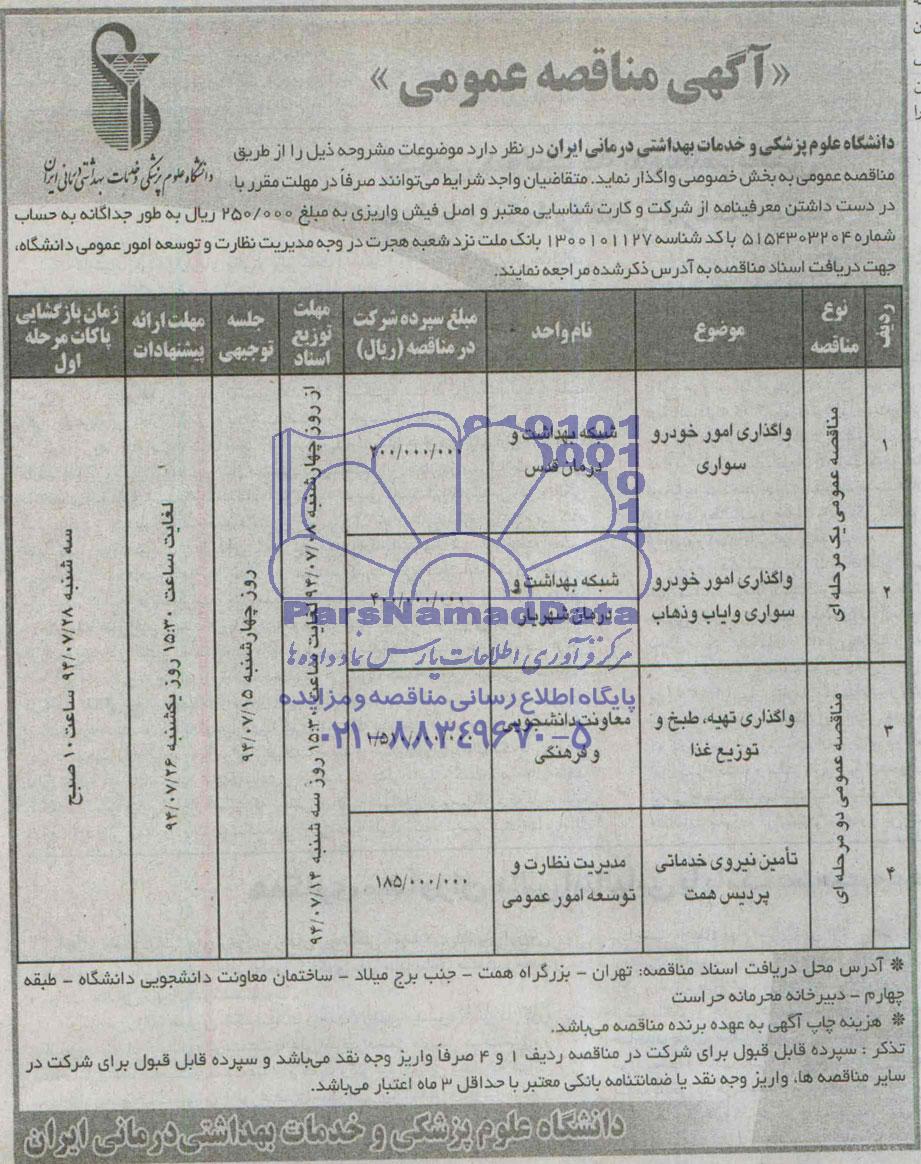 «آگهی مناقصه عمومی»
دانشگاه علوم پزشکی و خدمات بهداشتی درمانی ایران
دانشگاه علوم پزشکی و خدمات بهداشتی درمانی ایران در نظر دارد موضوعات مشروحه ذیل را از طریق
مناقصه عمومی به بخش خصوصی واگذار نماید. متقاضیان واجد شرایط می‌توانند صرفاً در مهلت مقرر با
در دست داشتن معرفینامه از شرکت و کارت شناسایی معتبر و اصل فیش واریزی به مبلغ ۲۵۰/۰۰۰ ریال به طور جداگانه به حساب
شماره ۵۱۵۴۳۰۳۲۰۴ با کد شناسه ۱۳۰۰۱۰۱۱۲۷ بانک ملت نزد شعبه هجرت در وجه مدیریت نظارت و توسعه امور عمومی دانشگاه،
جهت دریافت اسناد مناقصه به آدرس ذکر شده مراجعه نمایند.
ردیف
نوع مناقصه
موضوع
نام واحد
مبلغ سپرده شرکت در مناقصه (ریال)
مهلت توزیع اسناد
جلسه توجیهی
مهلت ارائه پیشنهادات
زمان بازگشایی پاکات مرحله اول
۱
مناقصه عمومی یک مرحله ای
واگذاری امور خودرو
سواری
شبکه بهداشت و
درمان قدس
۲۰۰/۰۰۰/۰۰۰
از روز چهارشنبه ۹۴/۰۷/۰۸ لغایت ساعت ۱۵:۳۰ روز سه شنبه ۹۴/۰۷/۱۴
روز چهارشنبه ۹۴/۰۷/۱۵
لغایت ساعت ۱۵:۳۰ روز یکشنبه ۹۴/۰۷/۲۶
سه شنبه ۹۴/۰۷/۲۸ ساعت ۱۰ صبح
۲
واگذاری امور خودرو
سواری و ایاب و ذهاب
شبکه بهداشت و
درمان شهریار
۴۰۰/۰۰۰/۰۰۰
۳
مناقصه عمومی دو مرحله ای
واگذاری تهیه، طبخ و
توزیع غذا
معاونت دانشجویی
و فرهنگی
۴
تأمین نیروی خدماتی
پردیس همت
مدیریت نظارت و
توسعه امور عمومی
۱۸۵/۰۰۰/۰۰۰
ParsNamadData
مرکز فرآوری اطلاعات پارس نماد داده‌ها
پایگاه اطلاع رسانی مناقصه و مزایده
۰۲۱-۸۸۳۴۹۶۷۰-۵
* آدرس محل دریافت اسناد مناقصه: تهران - بزرگراه همت - جنب برج میلاد - ساختمان معاونت دانشجویی دانشگاه - طبقه
چهارم - دبیرخانه محرمانه حراست
* هزینه چاپ آگهی به عهده برنده مناقصه می‌باشد.
تذکر : سپرده قابل قبول برای شرکت در مناقصه ردیف ۱ و ۴ صرفاً واریز وجه نقد می‌باشد و سپرده قابل قبول برای شرکت در
سایر مناقصه ها، واریز وجه نقد یا ضمانتنامه بانکی معتبر با حداقل ۳ ماه اعتبار می‌باشد.
دانشگاه علوم پزشکی و خدمات بهداشتی درمانی ایران